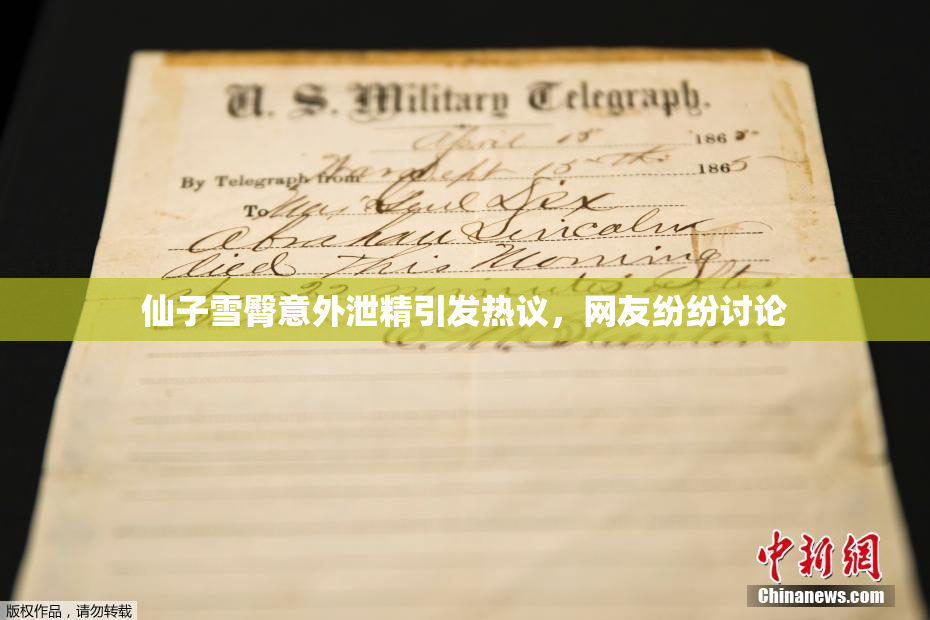 U. S. Military Telegraph.
April 15 1865
By Telegraph from War Dept 15th 1865
To Maj Genl Dix
Abraham Lincoln
died This Morning
22 minutes after
仙子雪臀意外泄精引发热议，网友纷纷讨论
E. M. Stanton
中新网
Chinanews.com
版权作品，请勿转载